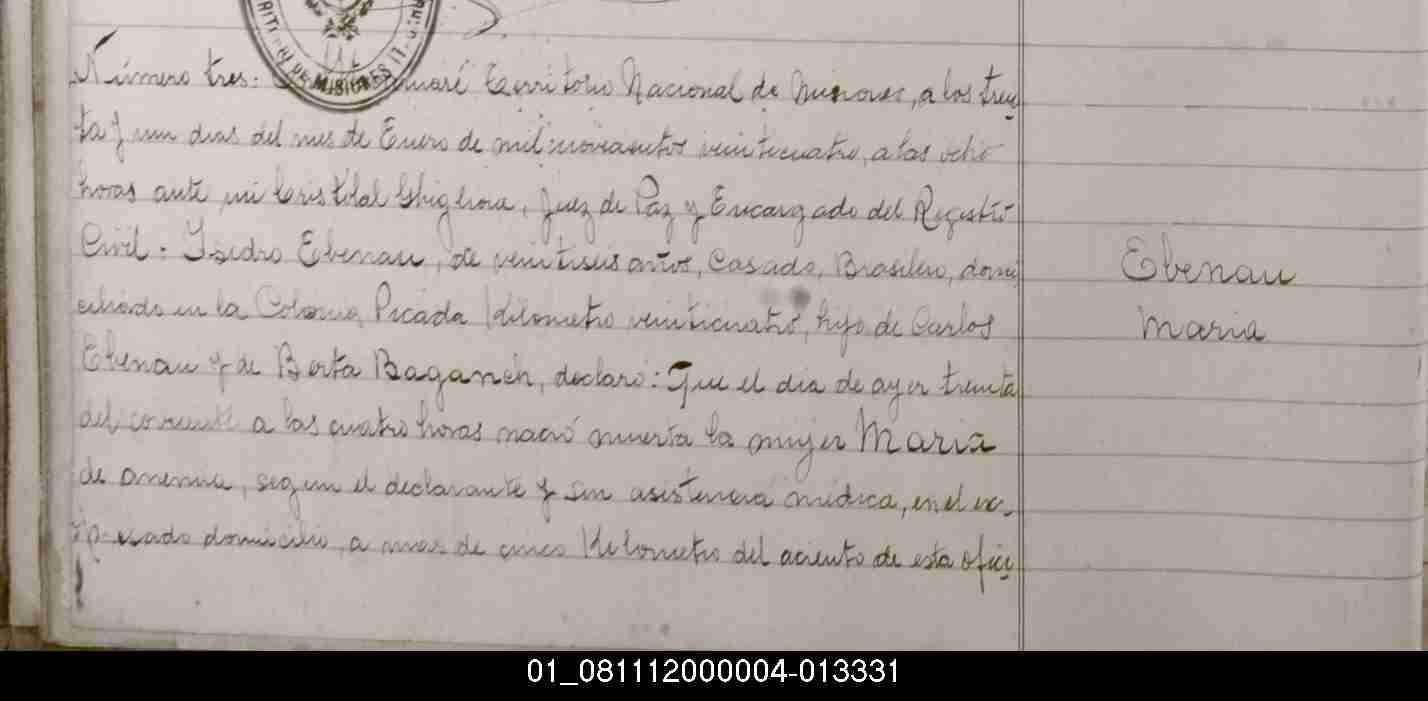 Número tres: En Caraguaré Territorio Nacional de Misiones, a los trein
ta y un dias del mes de Enero de mil novecientos veinticuatro, a las ocho
horas ante mi Cristobal Ghigliora, Juez de Paz y Encargado del Registro
Civil: Isidro Ebenau, de veintiseis años, Casado, Brasilero, domi
ciliado en la Colonia Picada Kilometro veinticuatro, hijo de Carlos
Ebenau y de Berta Baganch, declaró: Que el dia de ayer treinta
del corriente a las cuatro horas nació muerta la mujer Maria
de anemia, segun el declarante y sin asistencia médica, en el ex-
presado domicilio, a mas de cinco Kilometro del aciento de esta ofici
Ebenau
Maria
DE MISIONES
01_081112000004-013331